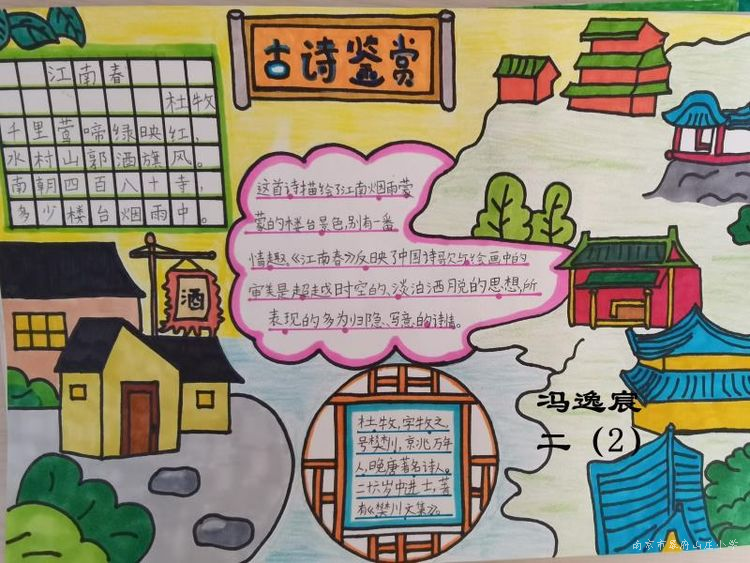 古诗鉴赏
江南春
杜牧
千里莺啼绿映红,
水村山郭酒旗风。
南朝四百八十寺,
多少楼台烟雨中。
这首诗描绘了江南烟雨蒙
蒙的楼台景色,别有一番
情趣。《江南春》反映了中国诗歌与绘画中的
审美是超越时空的、淡泊洒脱的思想,所
表现的多为归隐、写意的诗情。
酒
杜牧,字牧之,
号樊川,京兆万年
人,晚唐著名诗人。
二十六岁中进士,著
有《樊川文集》。
冯逸宸
二(2)
南京市幕府山庄小学